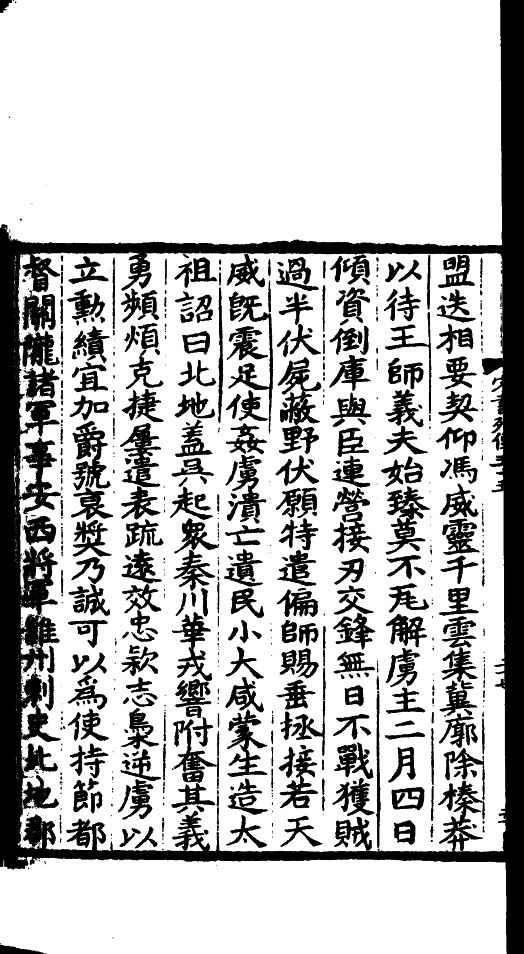 盟迭相要契仰馮威靈千里雲集冀廓除榛莽
以待王師義夫始臻莫不瓦解虜主二月四日
傾資倒庫與臣連營接刃交鋒無日不戰獲賊
過半伏屍蔽野伏願特遣偏師賜垂拯接若天
威旣震足使姦虜潰亡遺民小大咸蒙生造太
祖詔曰北地蓋吳起衆秦川華戎響附奮其義
勇頻煩克捷屢遣表疏遠效忠款志梟逆虜以
立勳績宜加爵號褒奬乃誠可以爲使持節都
督關隴諸軍事安西將軍雝州刺史北地郡